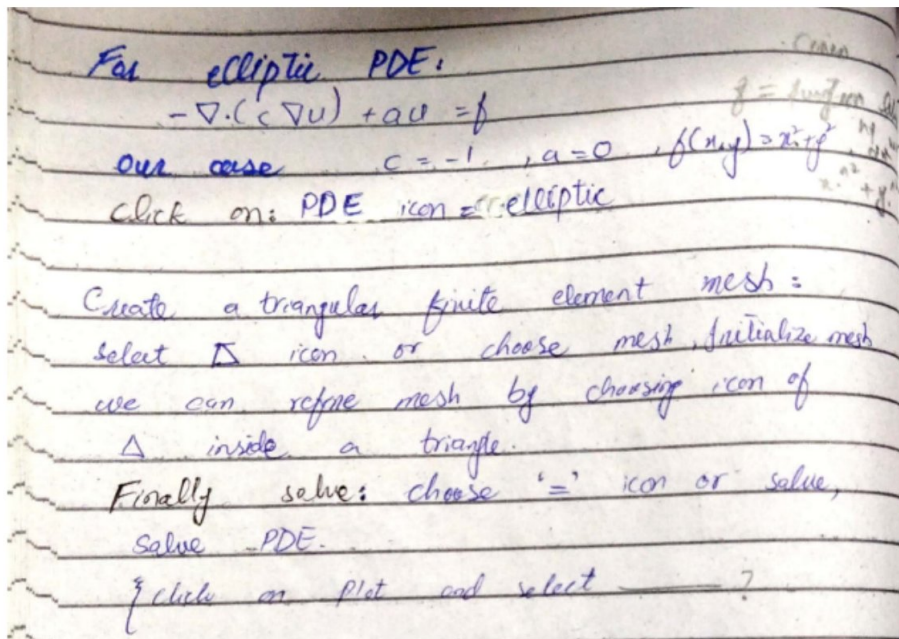 For elliptic PDE:
-∇.(c∇u) + au = f
our case c = -1, a=0, f(x,y) = x²+y²
click on: PDE icon = elliptic
Create a triangular finite element mesh:
select △ icon or choose mesh, Initialize mesh
we can refine mesh by choosing icon of
△ inside a triangle.
Finally solve: choose '=' icon or solve,
solve PDE.
{ click on Plot and select ——— ?